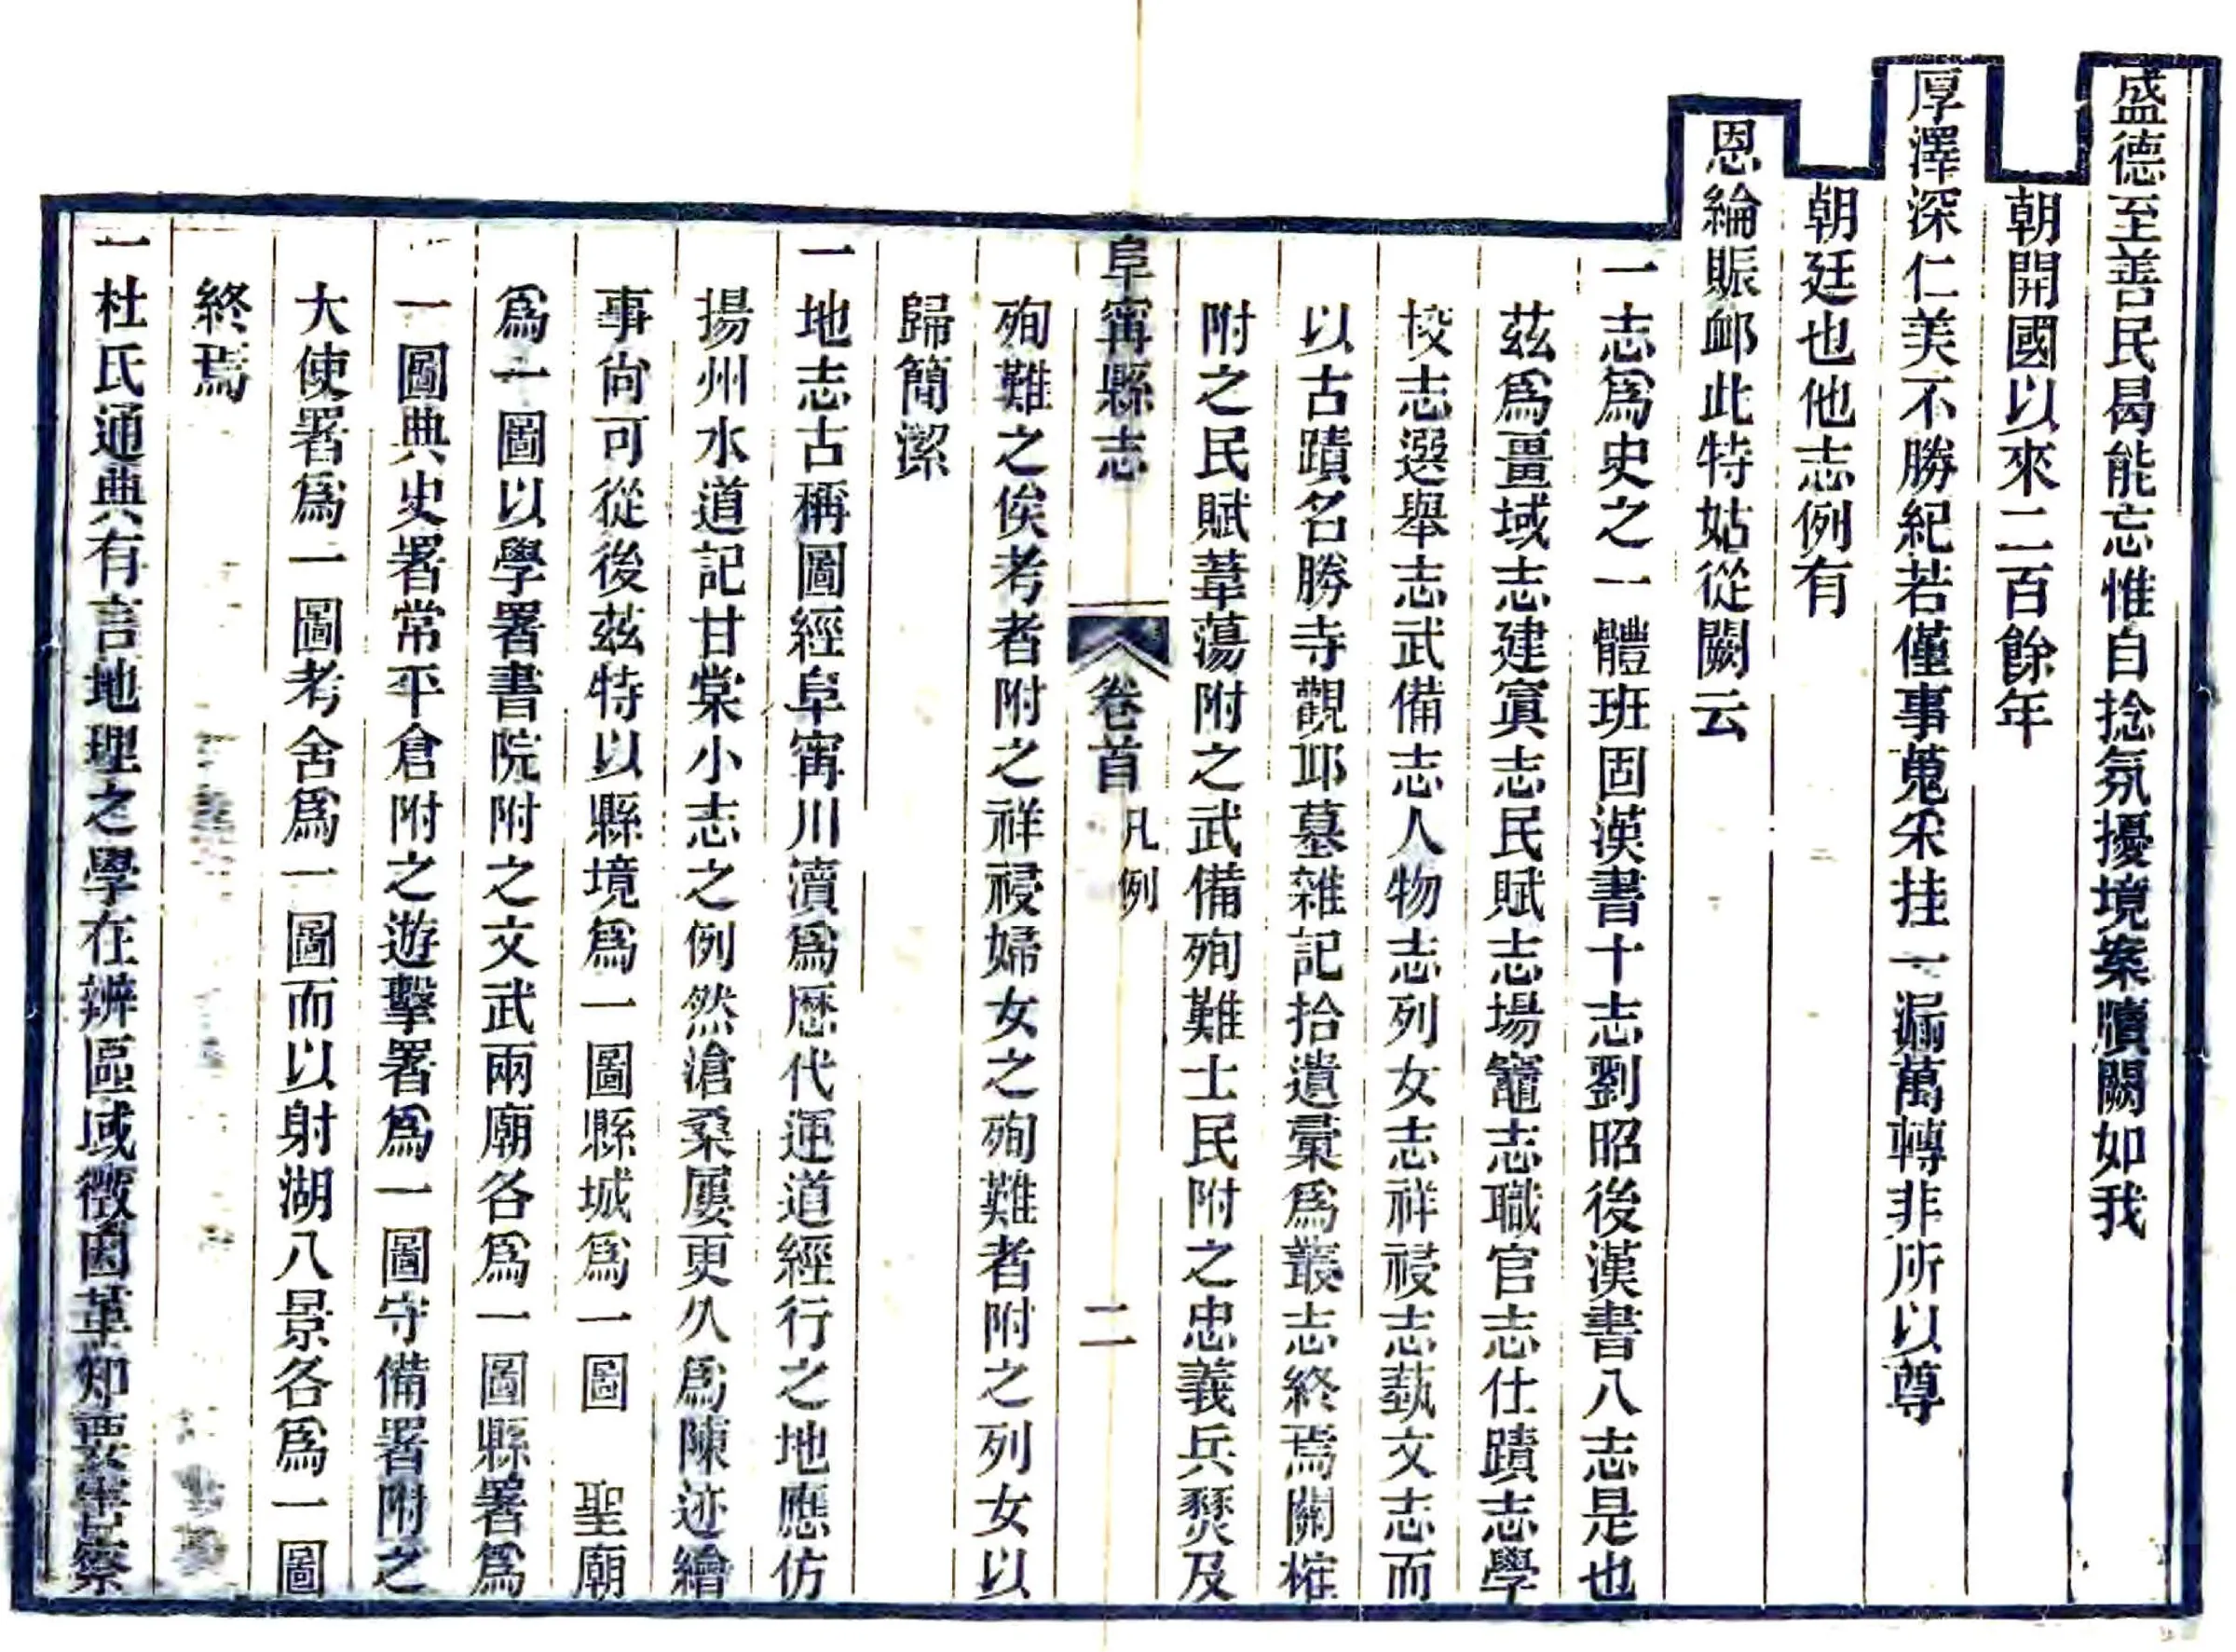 盛德至善民曷能忘惟自捻氛擾境案牘闕如我
朝開國以來二百餘年
厚澤深仁美不勝紀若僅事蒐采挂一漏萬轉非所以尊
朝廷也他志例有
恩綸賑䘏此特姑從闕云
一志爲史之一體班固漢書十志劉昭後漢書八志是也
茲爲畺域志建寘志民賦志場竈志職官志仕蹟志學
校志選舉志武備志人物志列女志祥祲志蓺文志而
以古蹟名勝寺觀邱墓雜記拾遺彙爲叢志終焉關榷
附之民賦葦蕩附之武備殉難士民附之忠義兵燹及
阜甯縣志
卷首
凡例
二
殉難之俟考者附之祥祲婦女之殉難者附之列女以
歸簡潔
一地志古稱圖經阜甯川瀆爲歷代運道經行之地應仿
揚州水道記甘棠小志之例然滄桑屢更久爲陳迹繪
事尙可從後茲特以縣境爲一圖縣城爲一圖 聖廟
爲一圖以學署書院附之文武兩廟各爲一圖縣署爲
一圖典史署常平倉附之遊擊署爲一圖守備署附之
大使署爲一圖考舍爲一圖而以射湖八景各爲一圖
終焉
一杜氏通典有言地理之學在辨區域徵因革知要害察